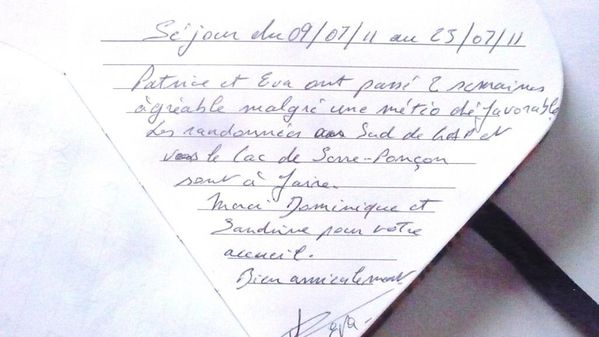 Séjour du 09/07/11 au 23/07/11
Patrice et Eva ont passé 2 semaines
agréable malgré une météo défavorable
Les randonnées au Sud de GAP et
vers le Lac de Serre-Ponçon
sont à faire.
Merci Dominique et
Sandrine pour votre
accueil.
Bien amicalement
Eva